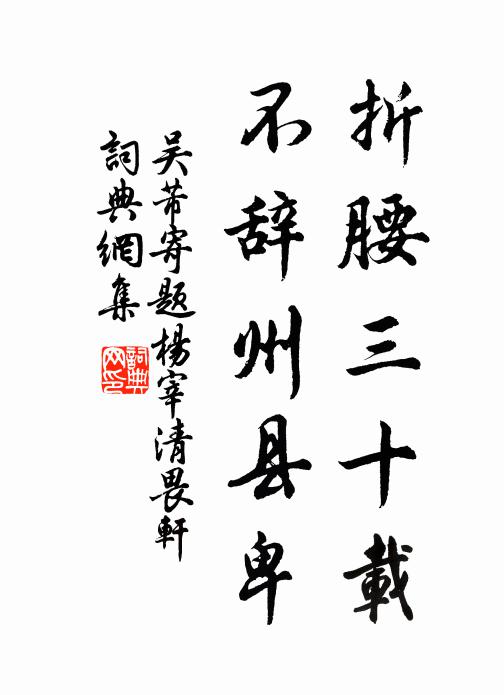 折腰三十載
不辞州县卑
吴芾寄题楊宰清畏軒
詞典網集
詞典網印